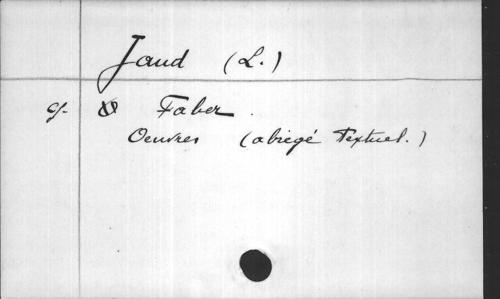 Jaud (L.)
cf. Faber.
Oeuvres (abregé textuel.)